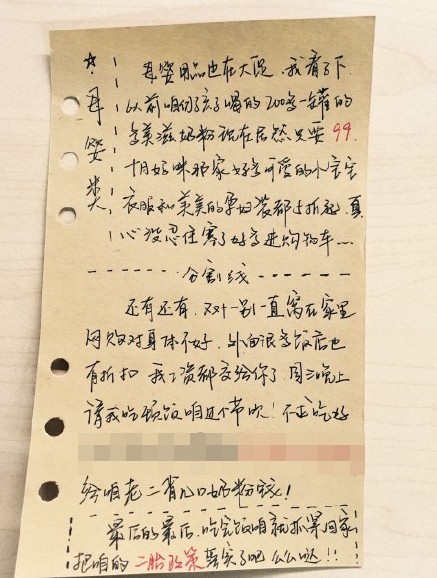 ☆母婴类
母婴用品也在大促,我看了下
以前咱们孩子喝的200多一罐的
美滋奶粉现在居然只要99.
十月妈咪那家好多可爱的小宝宝
衣服和美美的孕妇装都5折起,真
心没忍住塞了好多进购物车...
------分割线------
还有还有,双十一别一直窝在家里
网购对身体不好,外面很多饭店也
有折扣 我工资都交给你了,周三晚上
请我吃顿饭咱过个节吹!不止吃好
给咱老二省几口奶粉钱!
最后的最后,吃完饭咱就抓紧回家
把咱的二胎政策落实了吧 么么哒!!